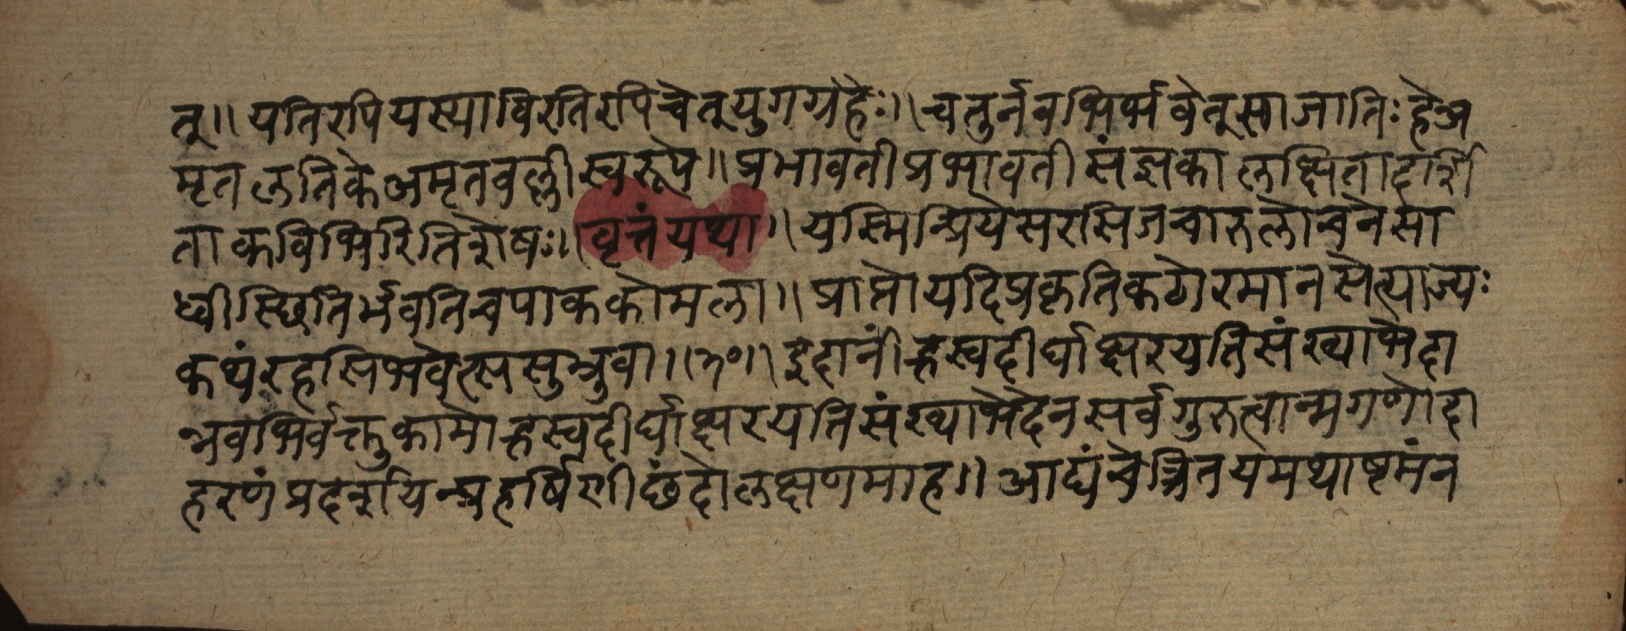 त्॥ यतिरपि यस्या विरतिरपि चेत् युगग्रहैः॥ चतुर्नवभिर्भवेत् सा जातिः हे अ
मृतलतिके अमृतवल्लीस्वरूपे॥ प्रभावती प्रभावती संज्ञका लक्षिता दर्शि
ता कविभिरिति शेषः॥ वृत्तं यथा॥ यस्मिन्प्रिये सरसिजचारुलोचने सा
ध्वी स्छितिर्भवति च पाककोमला॥ प्राप्तो यदि प्रकृतिकठोरमानसे त्याज्यः
कथं रहसि भवेत्स सुभ्रुवा॥ ३७॥ इदानीं ह्रस्वदीर्घाक्षरयतिसंख्याभेदा
भवभिर्वक्तुकामो ह्रस्वदीर्घाक्षरयतिसंख्याभेदेन सर्वगुरुत्वान्मगणोदा
हरणं प्रदर्शयिन्प्रहर्षिणीछंदोलक्षणमाह॥ आद्यं चेत्त्रितयमथाष्टमं न